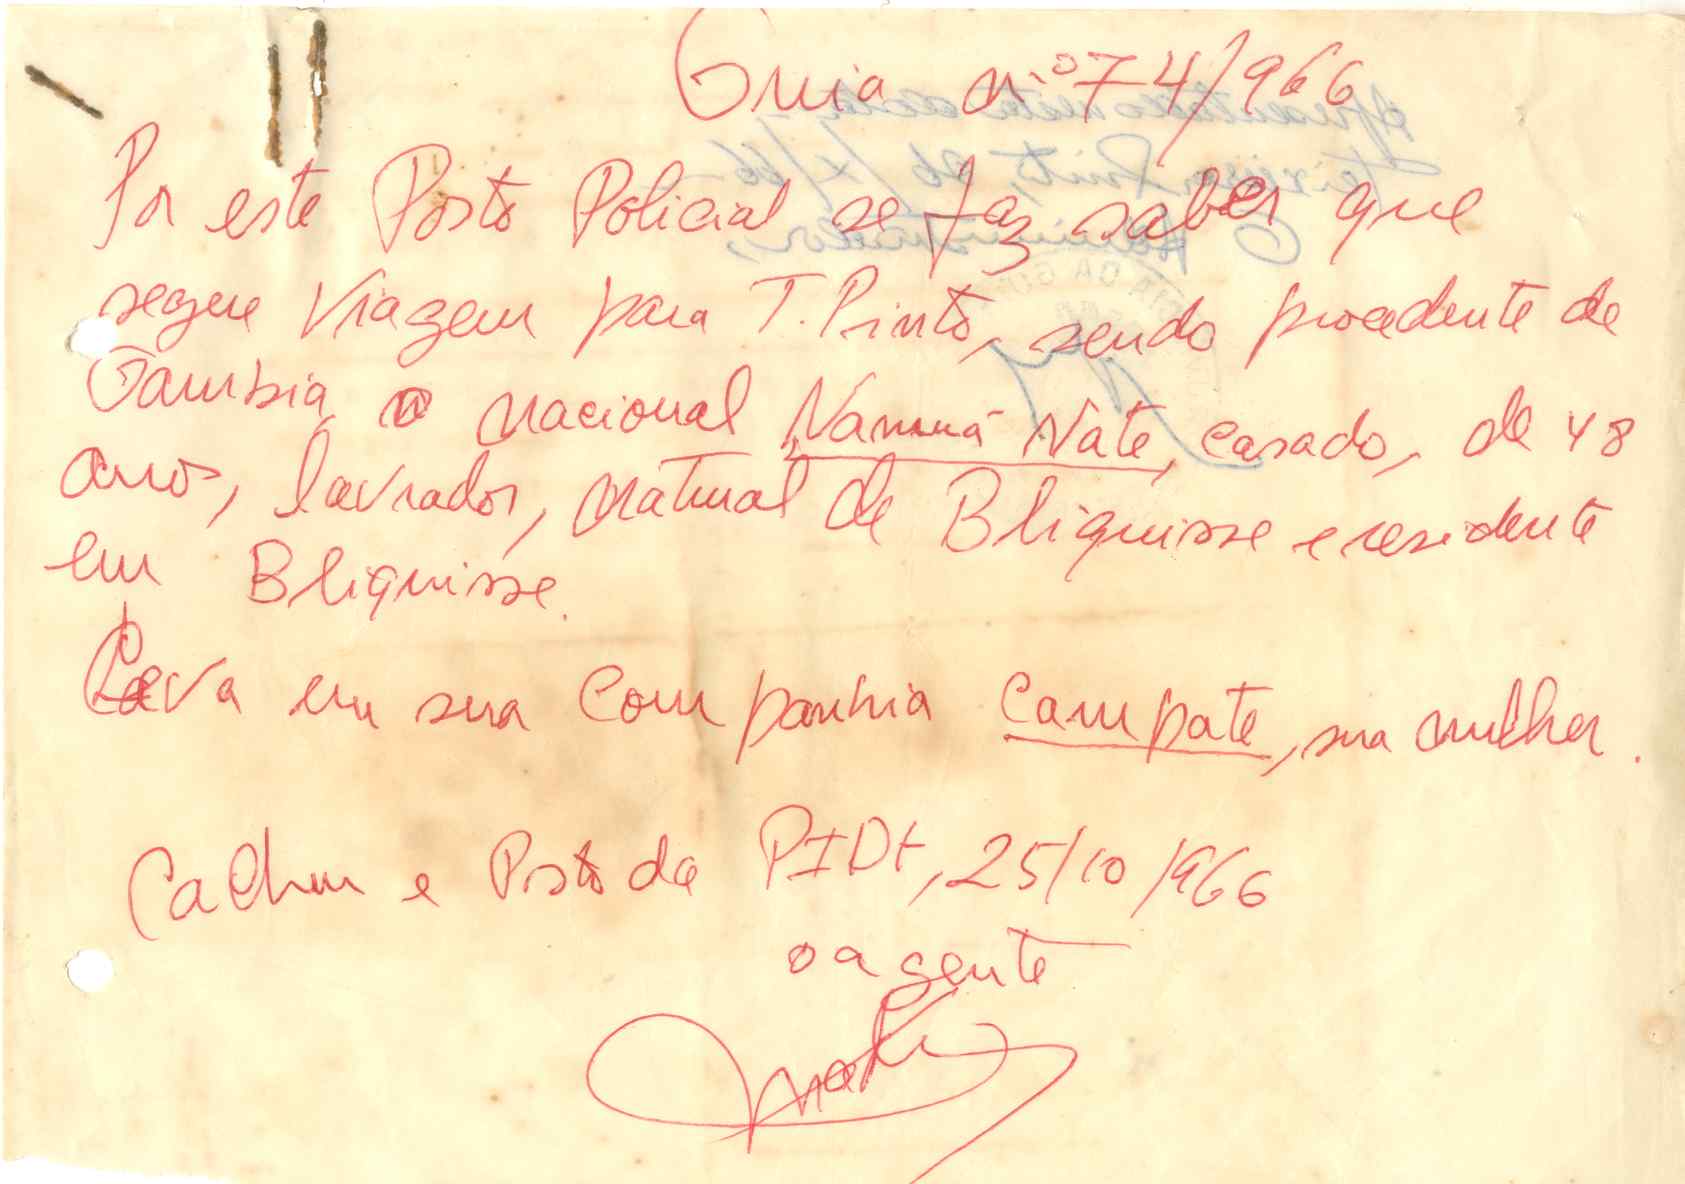 Guia nº 74/966
Por este Posto Policial se faz saber que
segue viagem para T. Pinto, sendo procedente de
Gambia o nacional Namuá Nate, casado, de 48
anos, lavrador, natural de Bliquisse e residente
em Bliquisse.
Leva em sua companhia Campate, sua mulher.
Calheu e Posto da PIDE, 25/10/966
o agente